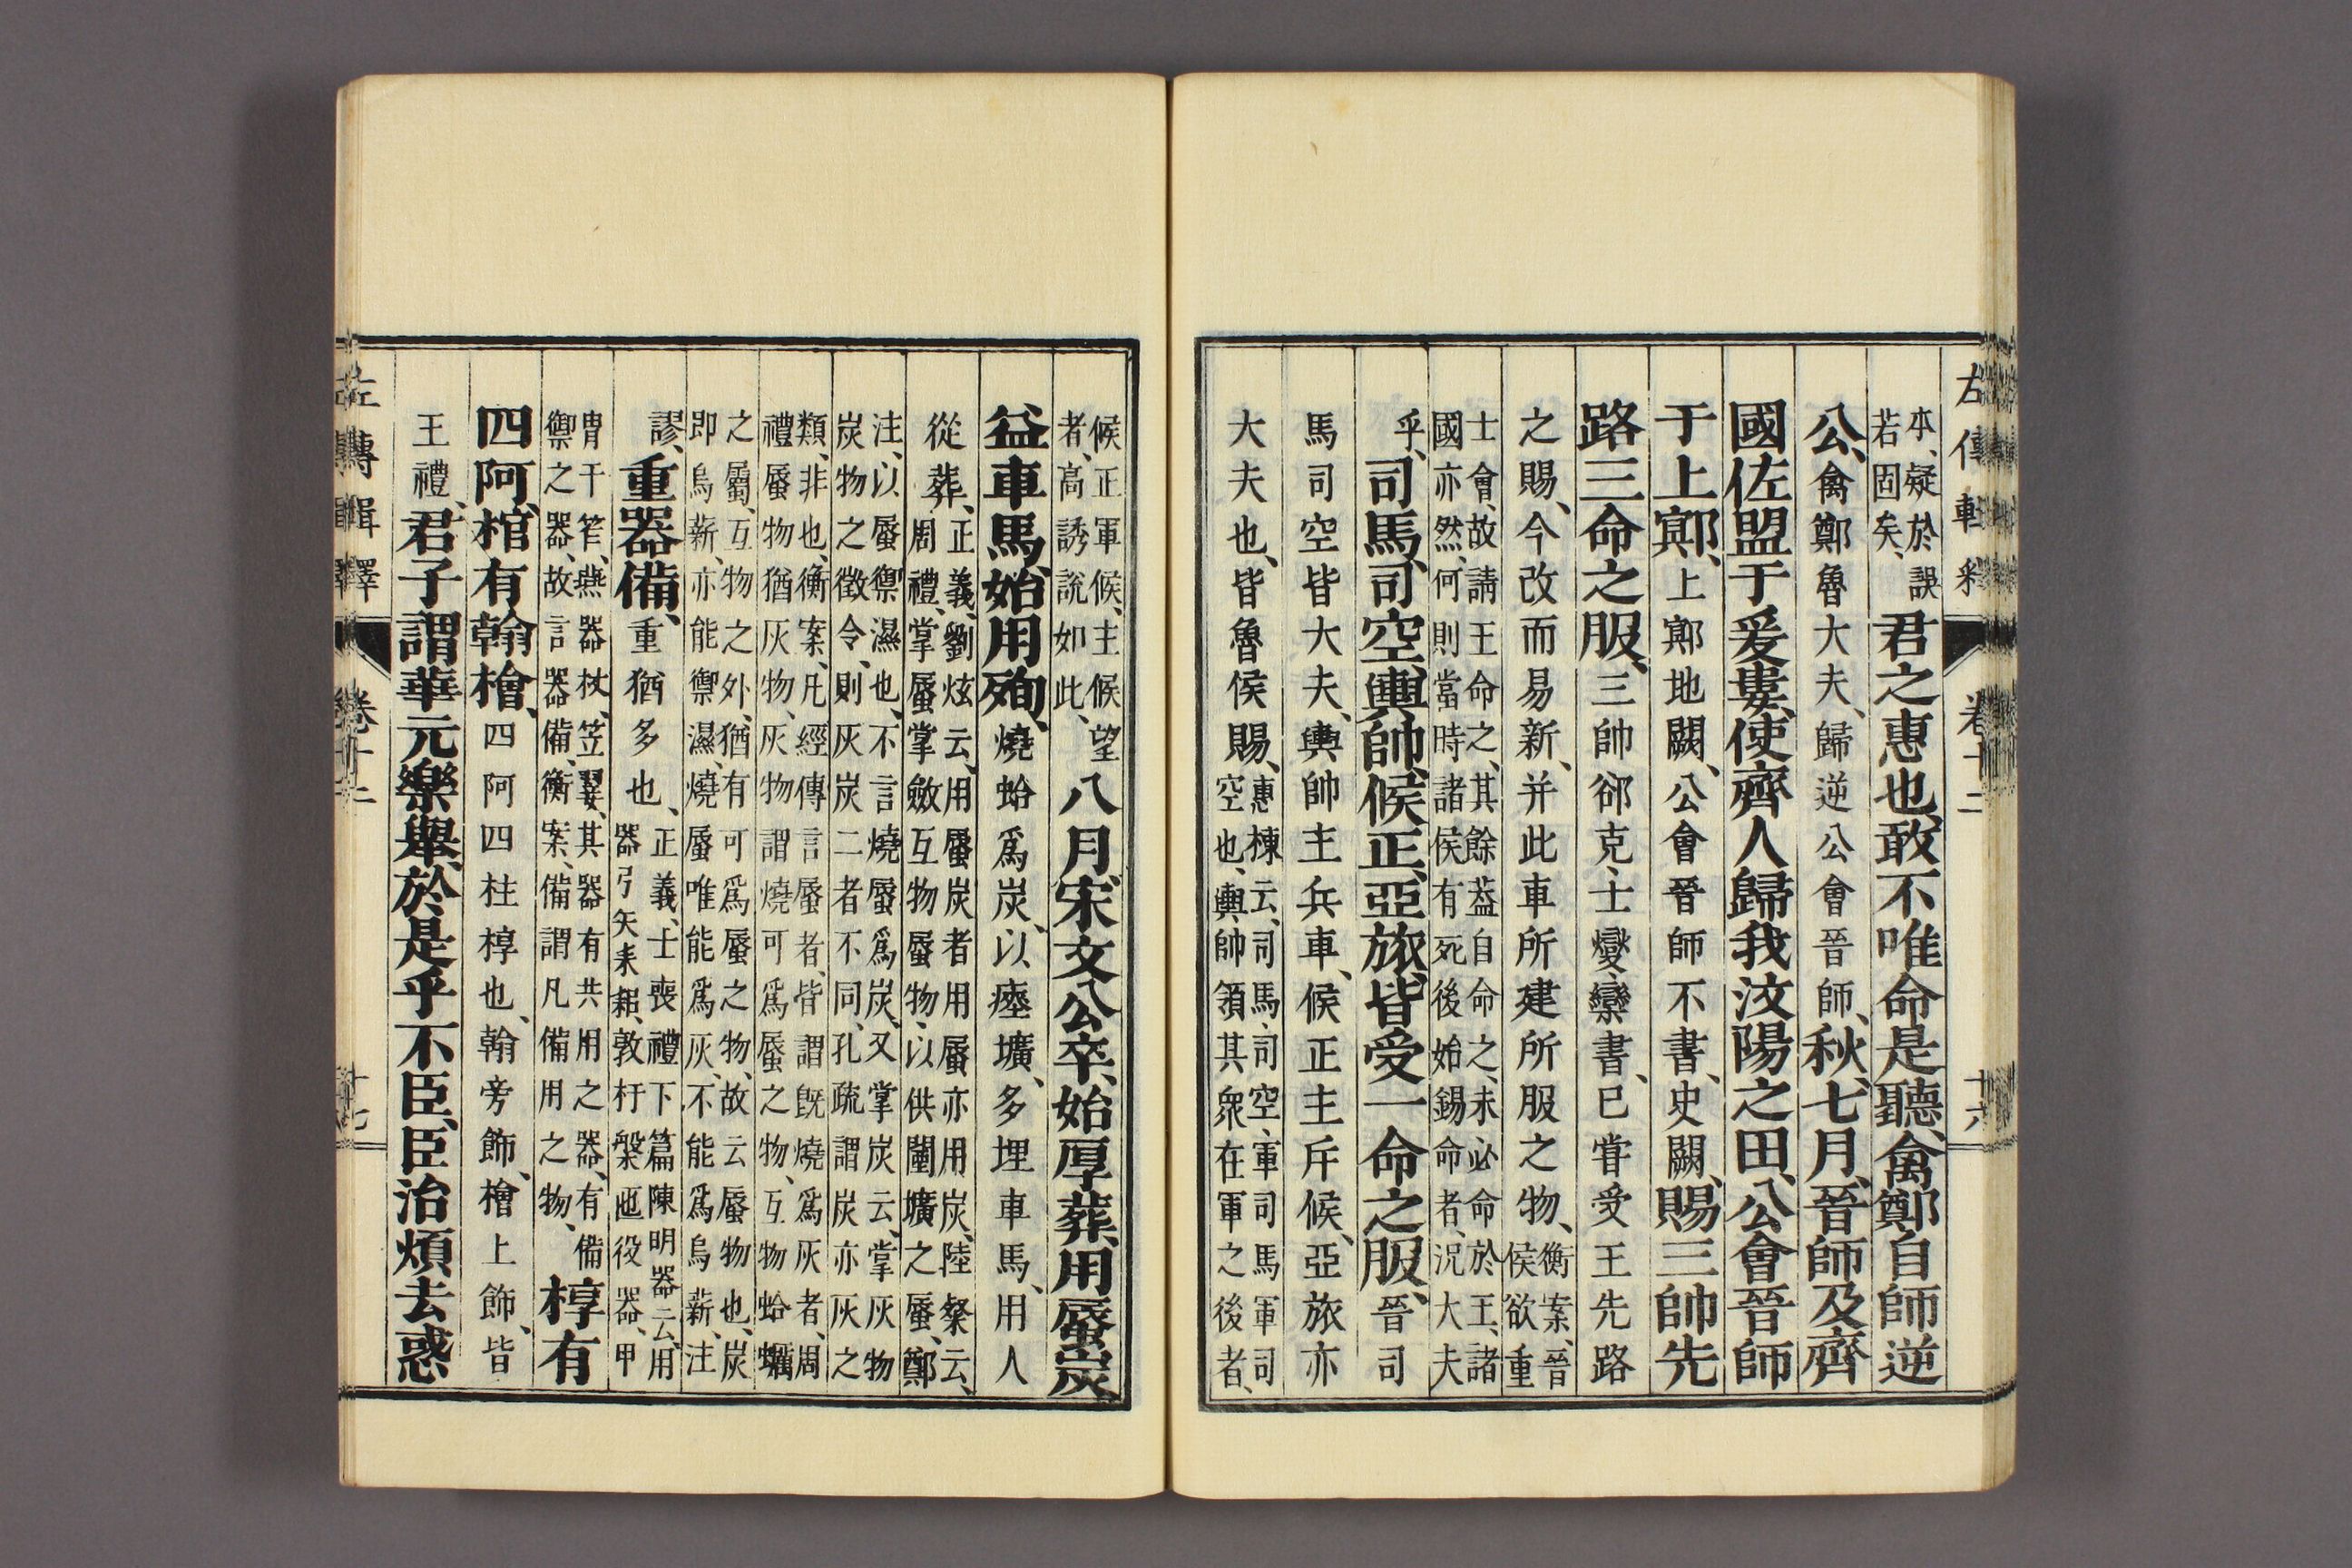 左傳輯釋 卷十二 十六
本、疑於誤
若固矣、
君之惠也、敢不唯命是聽、禽鄭自師逆
公、禽鄭魯大夫、歸逆公會晉師、秋、七月、晉師及齊
國佐盟于爰婁、使齊人歸我汶陽之田、公會晉師
于上鄍、上鄍地闕、公會晉師不書、史闕、賜三帥先
路三命之服、三帥郤克、士燮、欒書、已嘗受王先路
之賜、今改而易新、并此車所建所服之物、
衡案、晉
侯欲重
士會、故請王命之、其餘葢自命之、未必命於王、諸
國亦然、何則當時諸侯有死後始錫命者、況大夫
乎、司馬、司空、輿帥、候正、亞旅、皆受一命之服、晉司
馬司空皆大夫、輿帥主兵車、候正主斥候、亞旅亦
大夫也、皆魯侯賜、
惠棟云、司馬、司空、軍司馬軍司
空也、輿帥領其衆在軍之後者、
候正軍候、主候望
者、高誘說如此、
八月、宋文公卒、始厚葬、用蜃炭、
益車馬、始用殉、燒蛤爲炭、以瘞壙、多埋車馬、用人
從葬、
正義、劉炫云、用蜃炭者用蜃亦用炭、陸粲云、
周禮、掌蜃掌斂互物蜃物、以供闉壙之蜃、鄭
注、以蜃禦濕也、不言燒蜃爲炭、又掌炭云、掌灰物
炭物之徵令、則灰炭二者不同、孔疏謂炭亦灰之
類、非也、衡案、凡經傳言蜃者、皆謂旣燒爲灰者、周
禮蜃物猶灰物、灰物謂燒可爲蜃之物、互物蛤蠣
之屬、互物之外、猶有可爲蜃之物、故云蜃物也、炭
卽烏薪、亦能禦濕、燒蜃唯能爲灰、不能爲烏薪、注
謬、重器備、重猶多也、
正義、士喪禮下篇陳明器云、用
器弓矢耒耜、敦杅槃匜役器、甲
冑干笮、燕器杖、笠翣、其器有共用之器、有備
禦之器、故言器備、衡案、備謂凡備用之物、
椁有
四阿、棺有翰檜、四阿四柱椁也、翰旁飾、檜上飾、皆
王禮、君子謂華元樂舉、於是乎不臣、臣治煩去惑
左傳輯釋 卷十二 十七